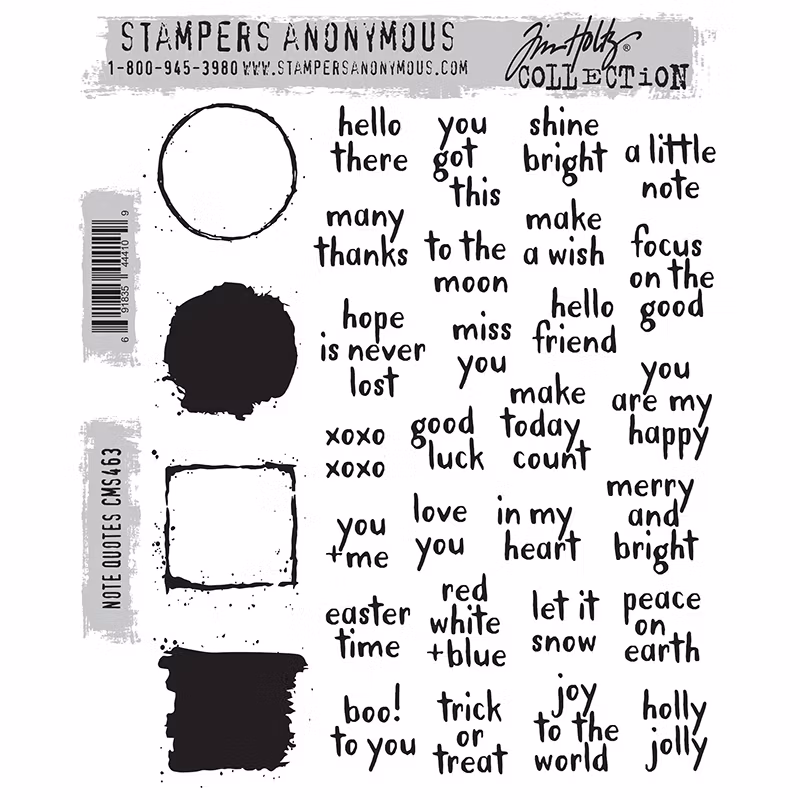 STAMPERS ANONYMOUS
1-800-945-3980 WWW.STAMPERSANONYMOUS.COM
Tim Holtz®
COLLECTION
6 91835 44410 9
NOTE QUOTES CMS463
hello
there
you
got
this
shine
bright
a little
note
many
thanks
to the
moon
make
a wish
focus
on the
good
hope
is never
lost
miss
you
hello
friend
you
are my
happy
xoxo
xoxo
good
luck
make
today
count
merry
and
bright
you
+me
love
you
in my
heart
easter
time
red
white
+blue
let it
snow
peace
on
earth
boo!
to you
trick
or
treat
joy
to the
world
holly
jolly